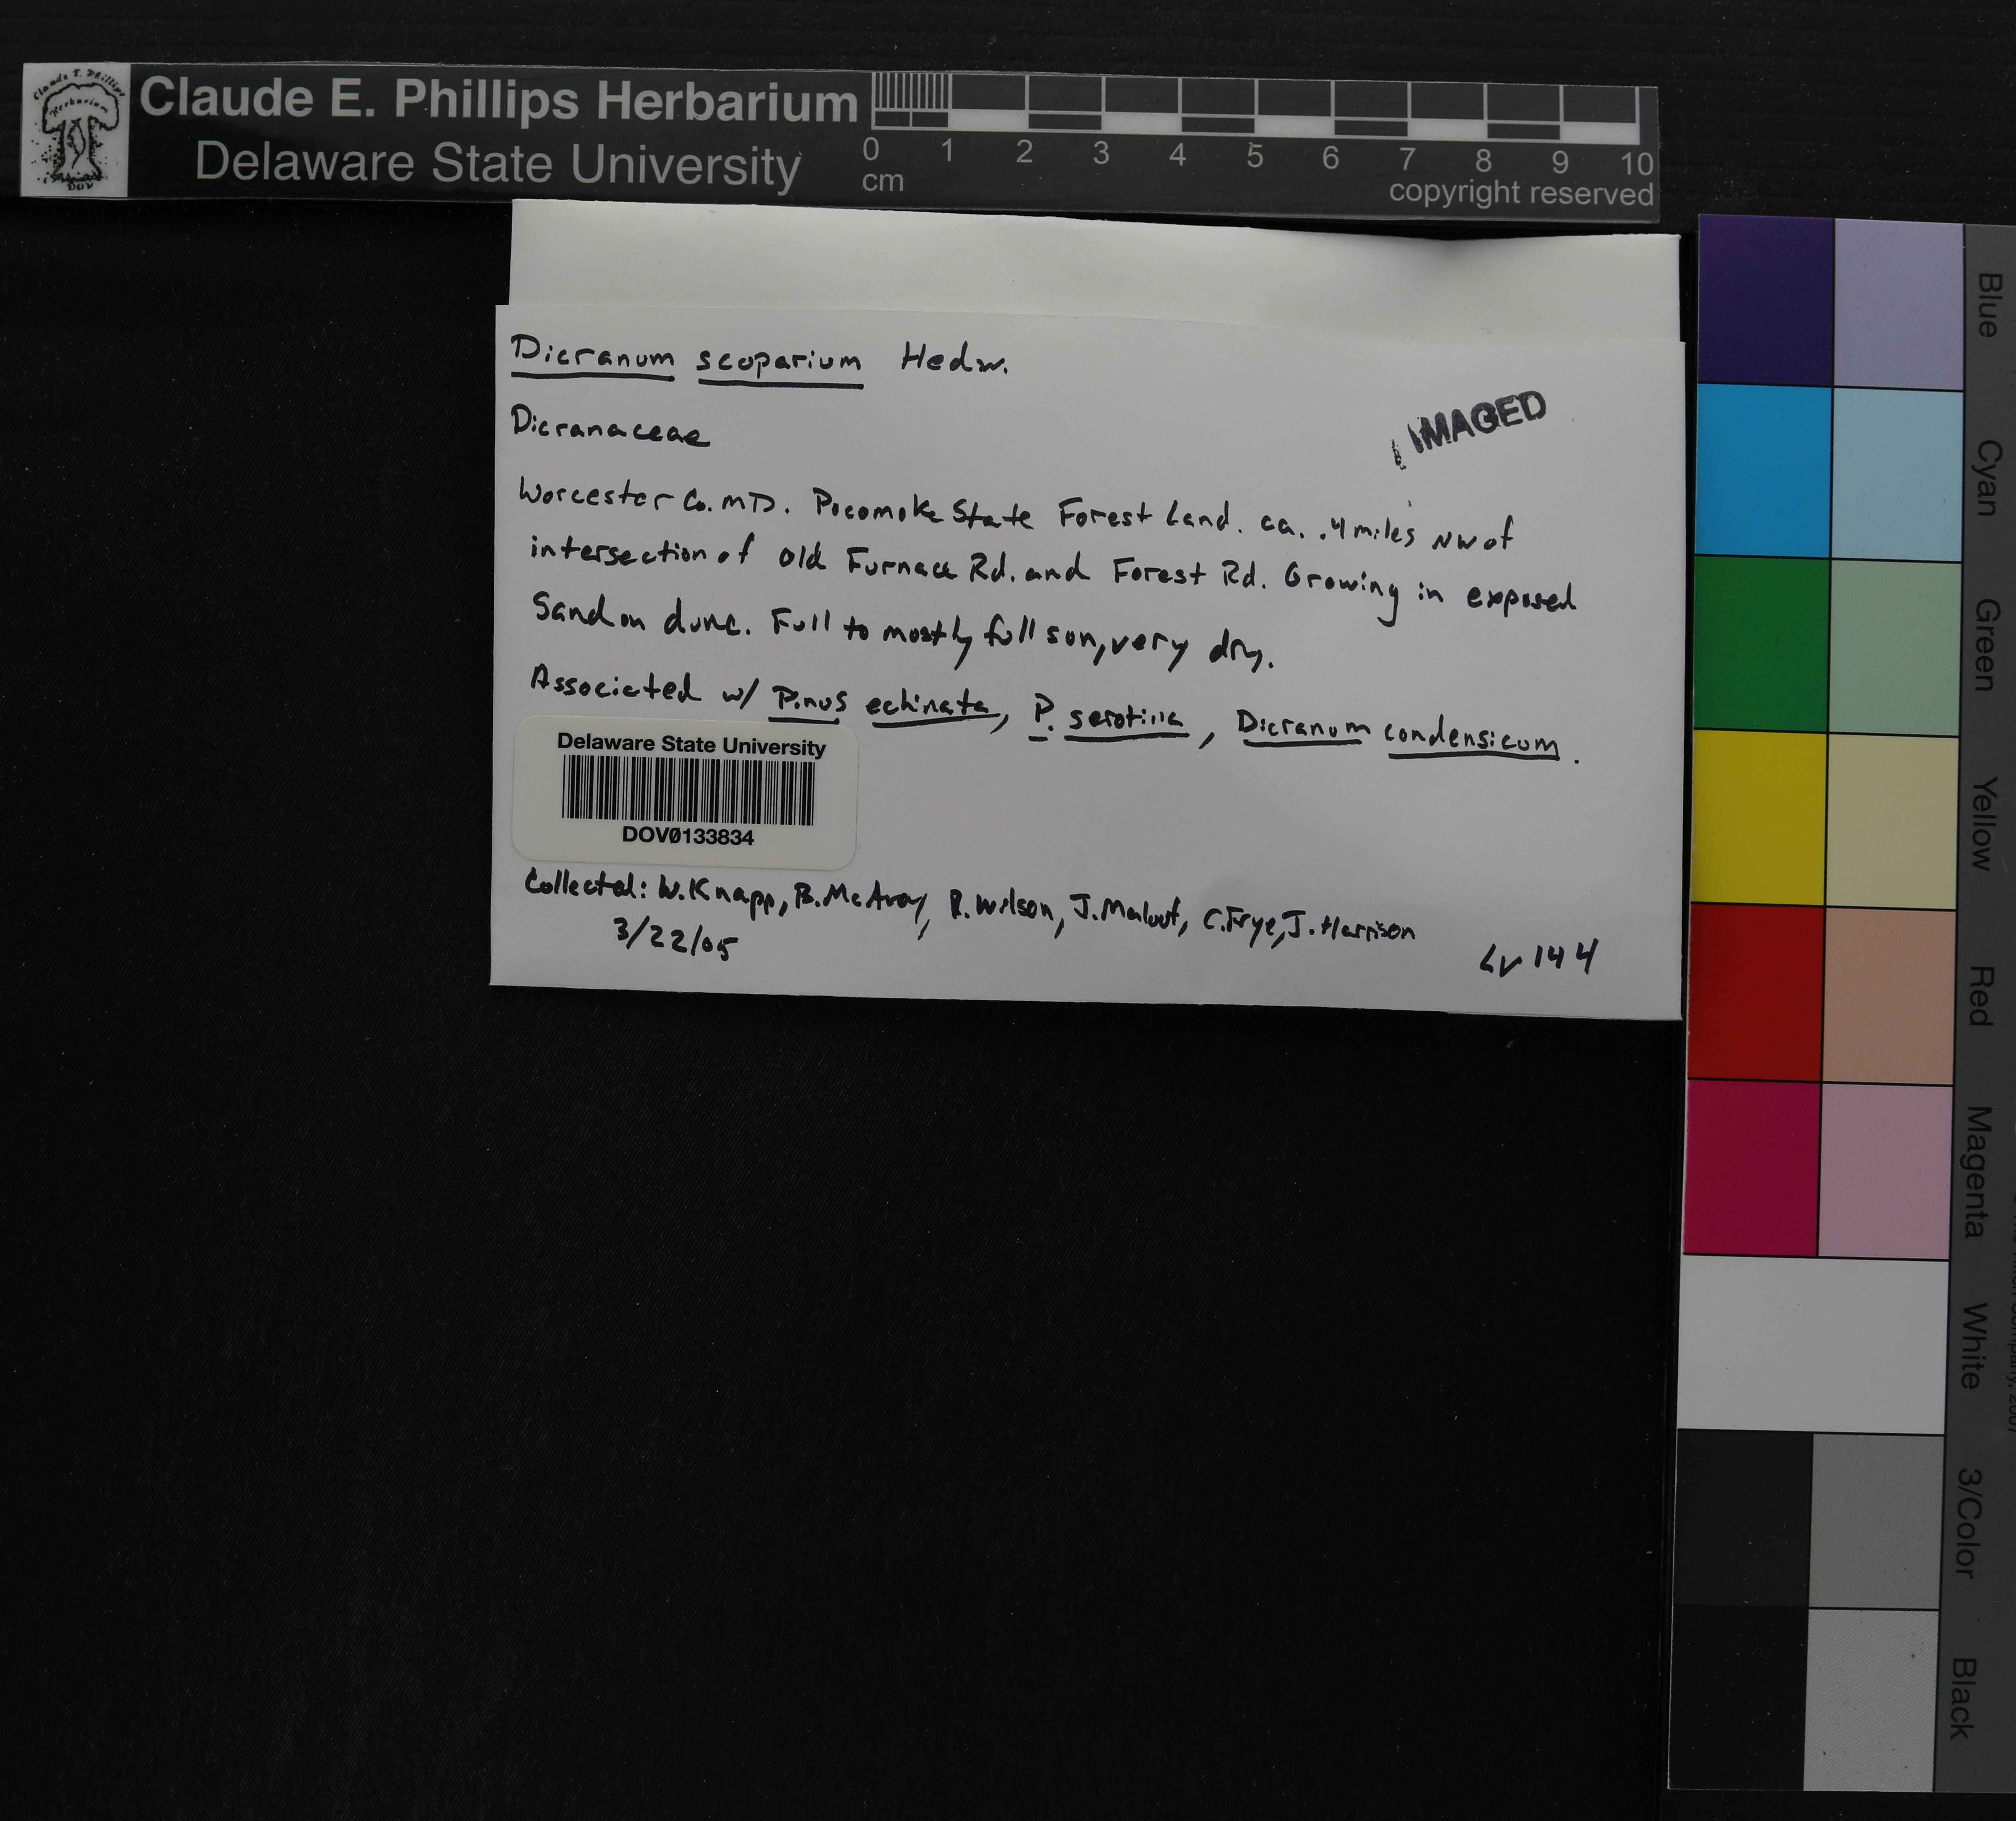 Claude E. Phillips Herbarium
Delaware State University
0 1 2 3 4 5 6 7 8 9 10
cm
copyright reserved
Dicranum scoparium Hedw.
Dicranaceae
IMAGED
Worcester Co. MD. Pocomoke State Forest Land. ca. .4 miles NW of
intersection of old Furnace Rd. and Forest Rd. Growing in exposed
Sand on dune. Full to mostly full sun, very dry.
Associated w/ Pinus echinata, P. serotina, Dicranum condensicum.
Delaware State University
DOV0133834
Collected: W. Knapp, B. McAvoy, R. Wilson, J. Maloof, C. Frye, J. Harrison
3/22/05
LV 144
Blue
Cyan
Green
Yellow
Red
Magenta
White
3/Color
Black